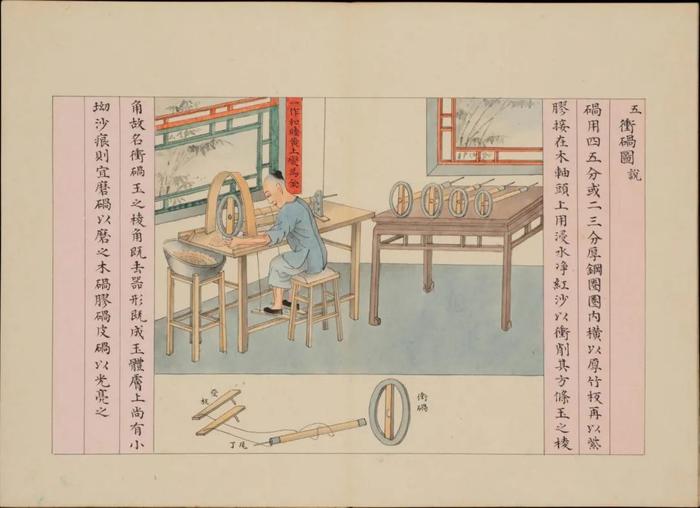 五 衝碢圖 說
碢用四五分或二三分厚鋼圈圈內橫以厚竹板再以紫
膠接在木軸頭上用浸水净紅沙以衝削其方條玉之棱
一作和睦黄土變為金
衝碢
登板
尾丁
角故名衝碢玉之棱角既去器形既成玉體膚上尚有小
坳沙痕則宜磨碢以磨之木碢膠碢皮碢以光亮之